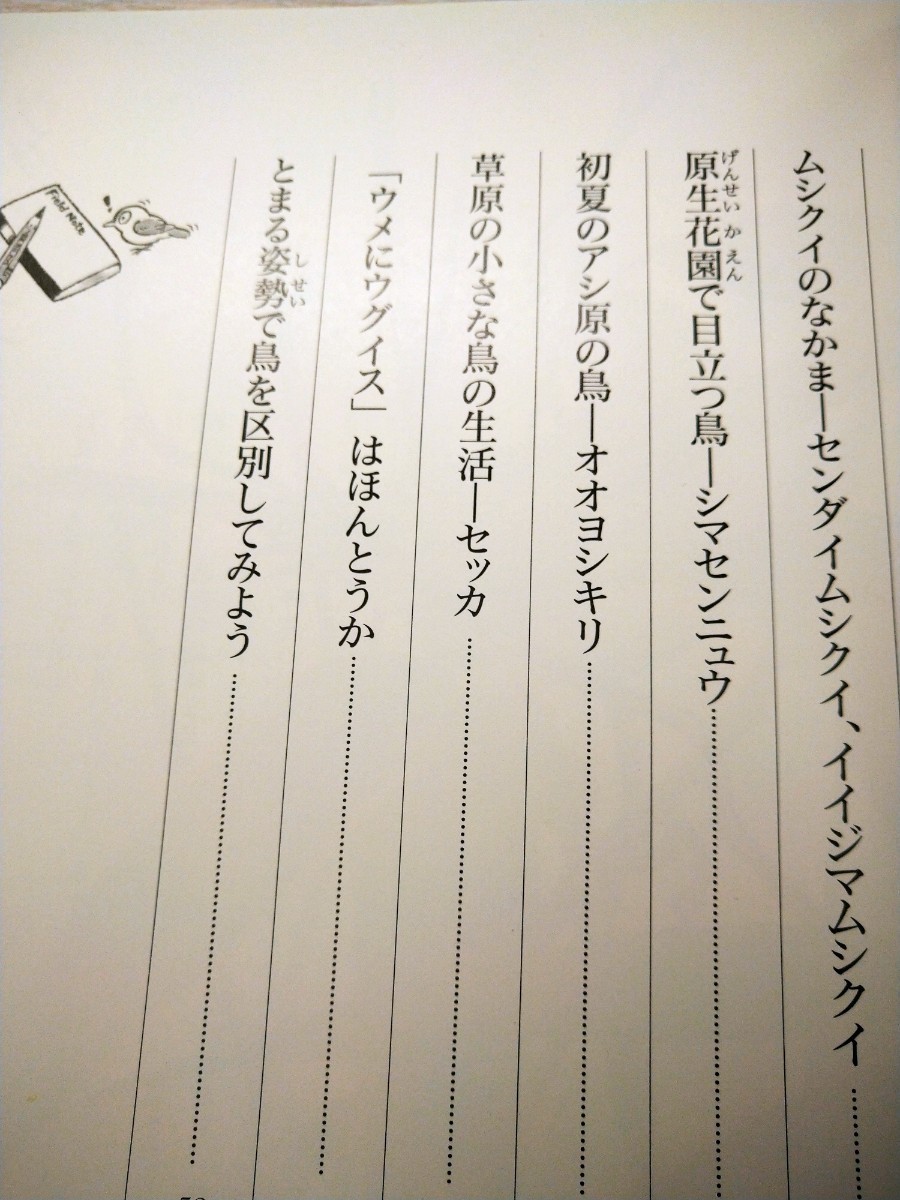 ムシクイのなかま―センダイムシクイ、イイジマムシクイ
原生花園で目立つ鳥―シマセンニュウ
げんせいかえん
初夏のアシ原の鳥―オオヨシキリ
草原の小さな鳥の生活―セッカ
「ウメにウグイス」はほんとうか
とまる姿勢で鳥を区別してみよう
しせい
Field Note